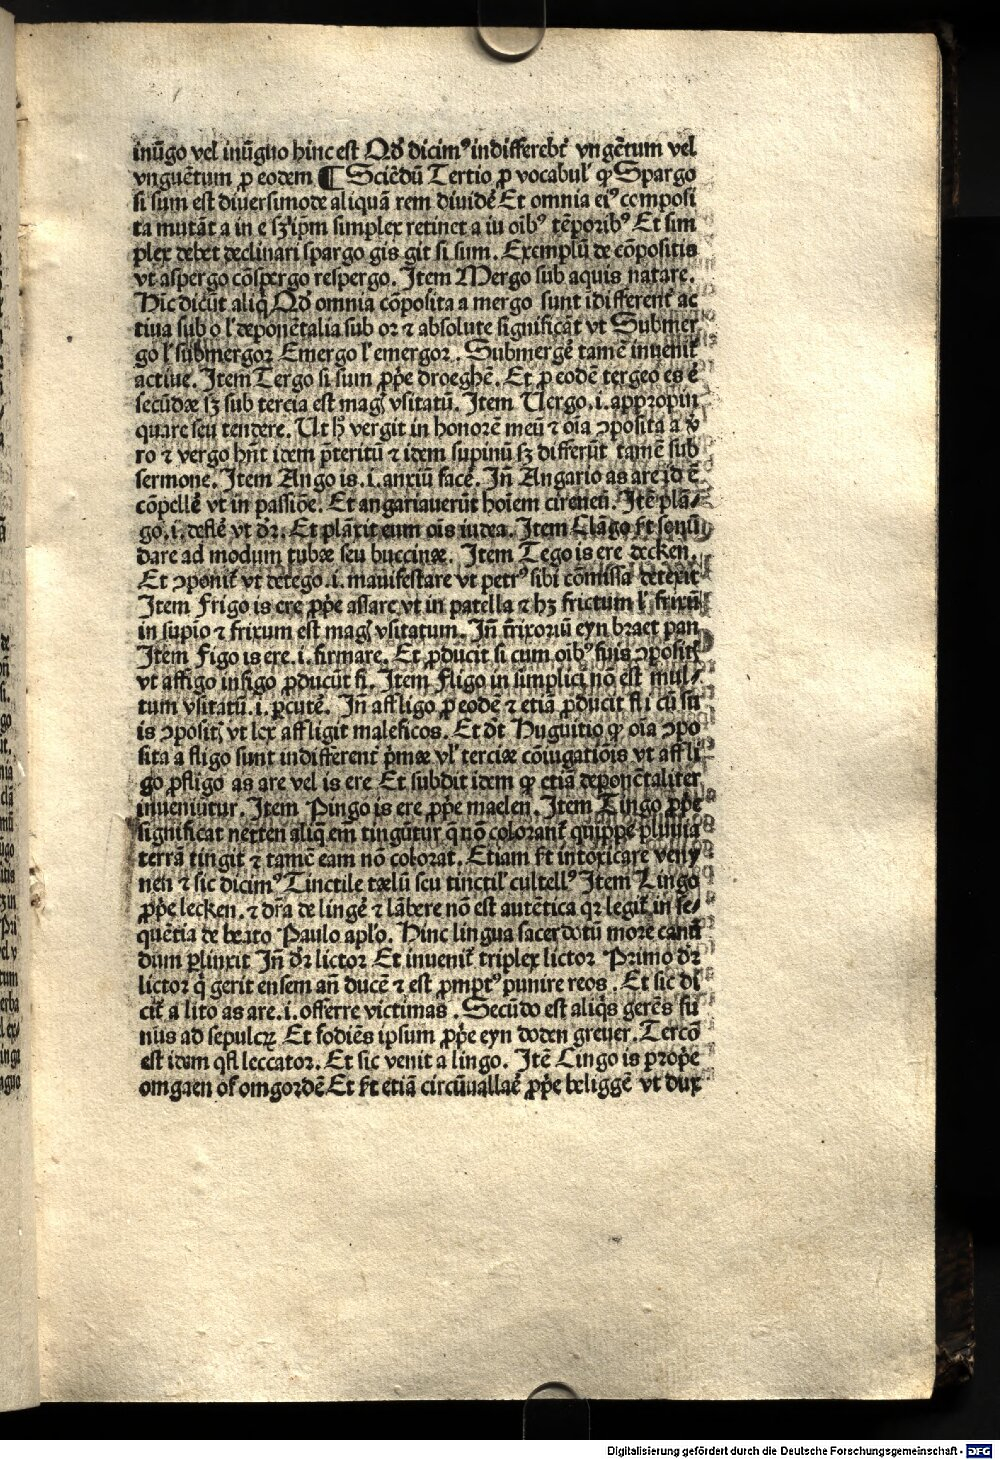 inūgo vel inūguo hinc est Qd̄ dicim⁹ indifferēt̄ vngētum vel
vnguētum ꝓ eodem ¶ Sciēdū Tertio ꝓ vocabul' ꝙ Spargo
si sum est diuersimode aliquā rem diuidē Et omnia ei⁹ composi
ta mutāt a in e sꝫ ip̄m simplex retinet a in oīb⁹ tēporib⁹ Et sim
plex debet declinari spargo gis git si sum. Exemplū de cōpositis
vt aspergo cōspergo respergo. Item Mergo sub aquis natare.
Hic dicūt aliq̄ Qd̄ omnia cōposita a mergo sunt īdifferent̄ ac
tiua sub o l' deponētalia sub or ⁊ absolute significāt vt Submer
go l' submergor Emergo l' emergor. Submergē tamē inuenit̄
actiue. Item Tergo si sum ꝓpe droeghē. Et ꝓ eodē tergeo es ē
secūdæ sꝫ sub tercia est maḡ vsitatū. Item Uergo .i. appropin
quare seu tendere. Ut h̄ vergit in honorē meū ⁊ oīa ꝯposita a v̄
ro ⁊ vergo hn̄t idem p̄teritū ⁊ idem supinū sꝫ differūt tamē sub
sermone. Item Ango is .i. anxiū facē. Jn̄ Angario as are id ē
cōpellē vt in passiōe. Et angariauerūt hoīem cirenen̄. Itē plā⸗
go .i. deflē vt dr̄. Et plāxit eum oīs iudea. Item Clāgo fit sonū
dare ad modum tubæ seu buccinæ. Item Tego is ere decken.
Et ꝯponit̄ vt detego .i. manifestare vt petr⁹ sibi cōmissa detexit
Item Frigo is ere ꝓpe assare vt in patella ⁊ hꝫ frictum l' frixū
in supīo ⁊ frixum est maḡ vsitatum. Jn̄ frixoriū eyn braet pan
Item Figo is ere .i. firmare. Et ꝓducit fi cum oīb⁹ suis ꝯposit̄
vt affigo insigo ꝓducūt fi. Item Fligo in simplici nō est mul⸗
tum vsitatū .i. ꝑcutē. Jn̄ affligo ꝓ eodē ⁊ etiā ꝓducit fli cū su
is ꝯposit̄ vt lex affligit maleficos. Et dt̄ Huguitio ꝙ oīa ꝯpo
sita a fligo sunt indifferent̄ p̄mæ vl' terciæ cōiugatiōis vt affli
go ꝓfligo as are vel is ere Et subdit idem ꝙ etiā deponētaliter
inueniūtur. Item Pingo is ere ꝓpe maelen. Item Tingo ꝓpe
significat netten aliq̄ em̄ tingūtur q̄ nō colorant̄ quippe pluuia
terrā tingit ⁊ tamē eam nō colorat. Etiam fit intoxicare veny
nen ⁊ sic dicim⁹ Tinctile tælū seu tinctil' cultell⁹ Item Lingo
ꝓpe lecken. ⁊ dr̄a de lingē ⁊ lābere nō est autētica qꝛ legit̄ in se⸗
quētia de beato Paulo aplo. Hinc lingua sacerdotū more canū
dum ꝑlinxit Jn̄ dr̄ lictor Et inuenit̄ triplex lictor Primo dr̄
lictor q̄ gerit ensem an̄ ducē ⁊ est ꝓmpt⁹ punire reos. Et sic di
cit̄ a lito as are .i. offerre victimas. Secūdo est aliq̄s gerēs fu
nus ad sepulcꝝ Et fodiēs ipsum ꝓpe eyn doden greuer. Tercō
est idem qsi leccator. Et sic venit a lingo. Itē Cingo is prope
omgaen of omgordē Et fit etiā circūuallaē ꝓpe beliggē vt dux
Digitalisierung gefördert durch die Deutsche Forschungsgemeinschaft - DFG